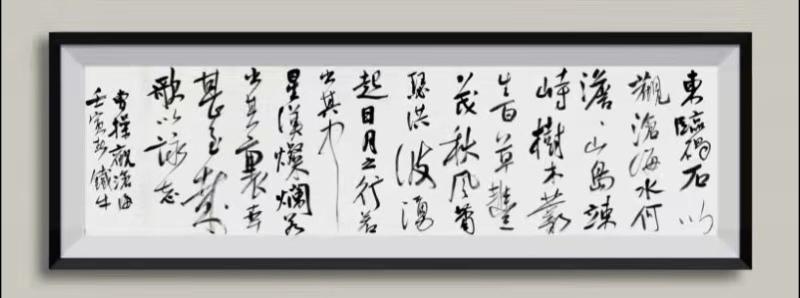 東臨碣石以
觀滄海水何
澹々山島竦
峙樹木叢
生百草豐
茂秋風蕭
瑟洪波湧
起日月之行若
出其中
星漢燦爛若
出其裏幸
甚至哉
歌以詠志
曹操觀滄海
壬寅鐵牛